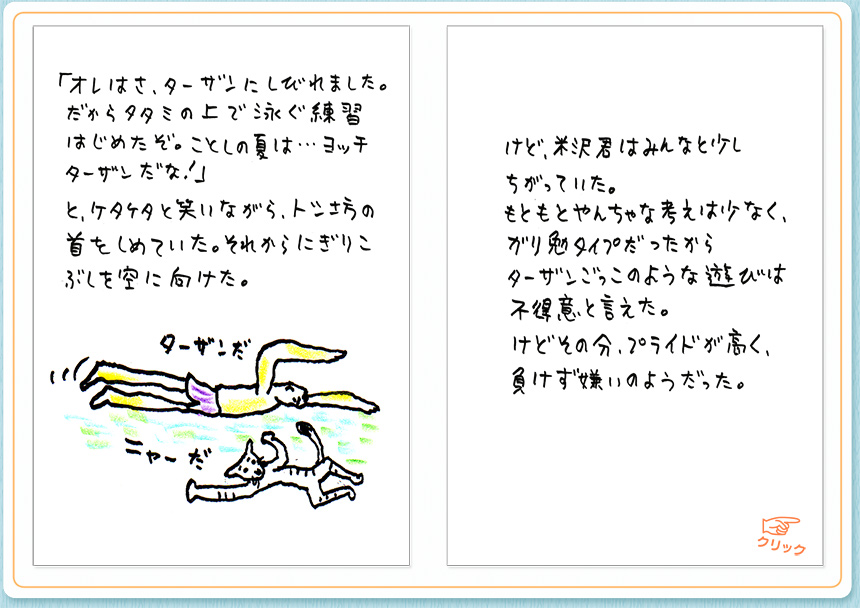 「オレはさ、ターザンにしびれました。
だからタタミの上で泳ぐ練習
はじめたぞ。ことしの夏は…ヨッチ
ターザンだな!」
と、ケタケタと笑いながら、トン坊の
首をしめていた。それからにぎりこ
ぶしを空に向けた。
ターザンだ
ニャーだ
けど、米沢君はみんなと少し
ちがっていた。
もともとやんちゃな考えは少なく、
ガリ勉タイプだったから
ターザンごっこのような遊びは
不得意と言えた。
けどその分、プライドが高く、
負けず嫌いのようだった。
クリック